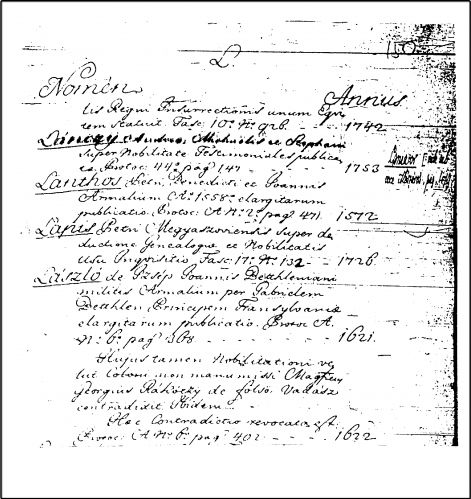 L.
150.
Nomen Annus
tis Regni Insurrectionis unum Equi
tem statuit. Fasc: 10. N: 926. - - 1742
Lánczy Andreae Michaëlis et Stephani
super Nobilitate Testimoniales publica
tae. Protoc: 44. pag 141 - - 1753
Lanthos Petri, Benedicti et Joannis
Armalium A: 1558. elargitarum
publicatio. Protoc: A N: 2. pag 411. 1572
Lapis Petri Megyaszoiensis super de
ductione Genealogiae et Nobilitatis
Usu Inquisitio. Fasc: 17. N: 132 - - 1726
László de Szèp Joannis Betthleniani
militis Armalium per Gabrielem
Betthlen Principem Transylvaniae
elargitarum publicatio. Protoc A.
N: 6. pag 368 - - - 1621.
Hujus tamen Nobilitationi ve
lut Coloni non manumissi
Georgius Rákóczy de Felsö Vadász
contradixit Ibidem
Haec Contradictio revocata est
Protoc: A N: 6. pag: 402 - - - 1622